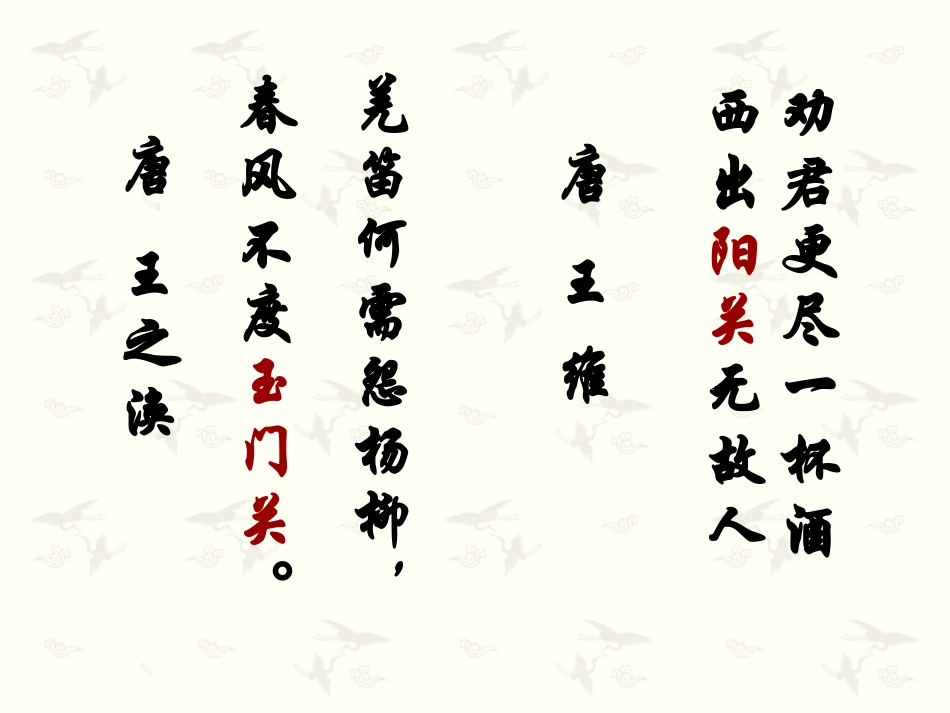 劝君更尽一杯酒
西出阳关无故人
唐 王维
羌笛何需怨杨柳，
春风不度玉门关。
唐 王之涣